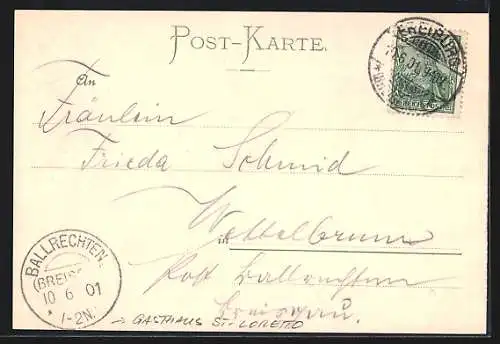 POST-KARTE.
FREIBURG
An
Fräulein
Frieda Schmid
in Wettelbrunn
Post Ballrechten
Breisgau.
BALLRECHTEN.
(BREISG
10 6 01
* 1-2N.
→ GASTHAUS ST-LORETTO